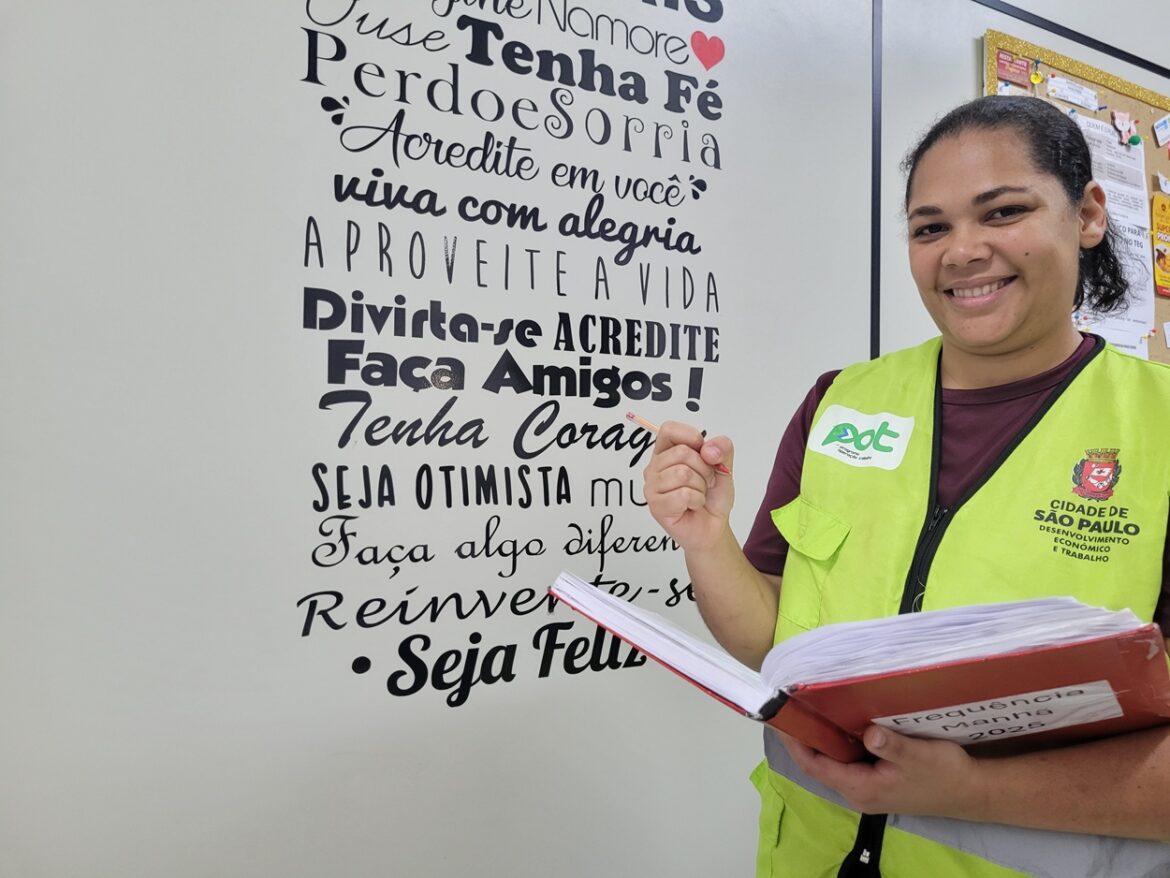 Namore
Ouse Tenha Fé
Perdoe Sorria
Acredite em você
viva com alegria
APROVEITE A VIDA
Divirta-se ACREDITE
Faça Amigos!
Tenha
SEJA OTIMISTA
Faça algo
Reinvente-se
• Seja Feliz
pot
CIDADE DE
SÃO PAULO
DESENVOLVIMENTO
ECONÔMICO
E TRABALHO
Frequência
Manhã
2025